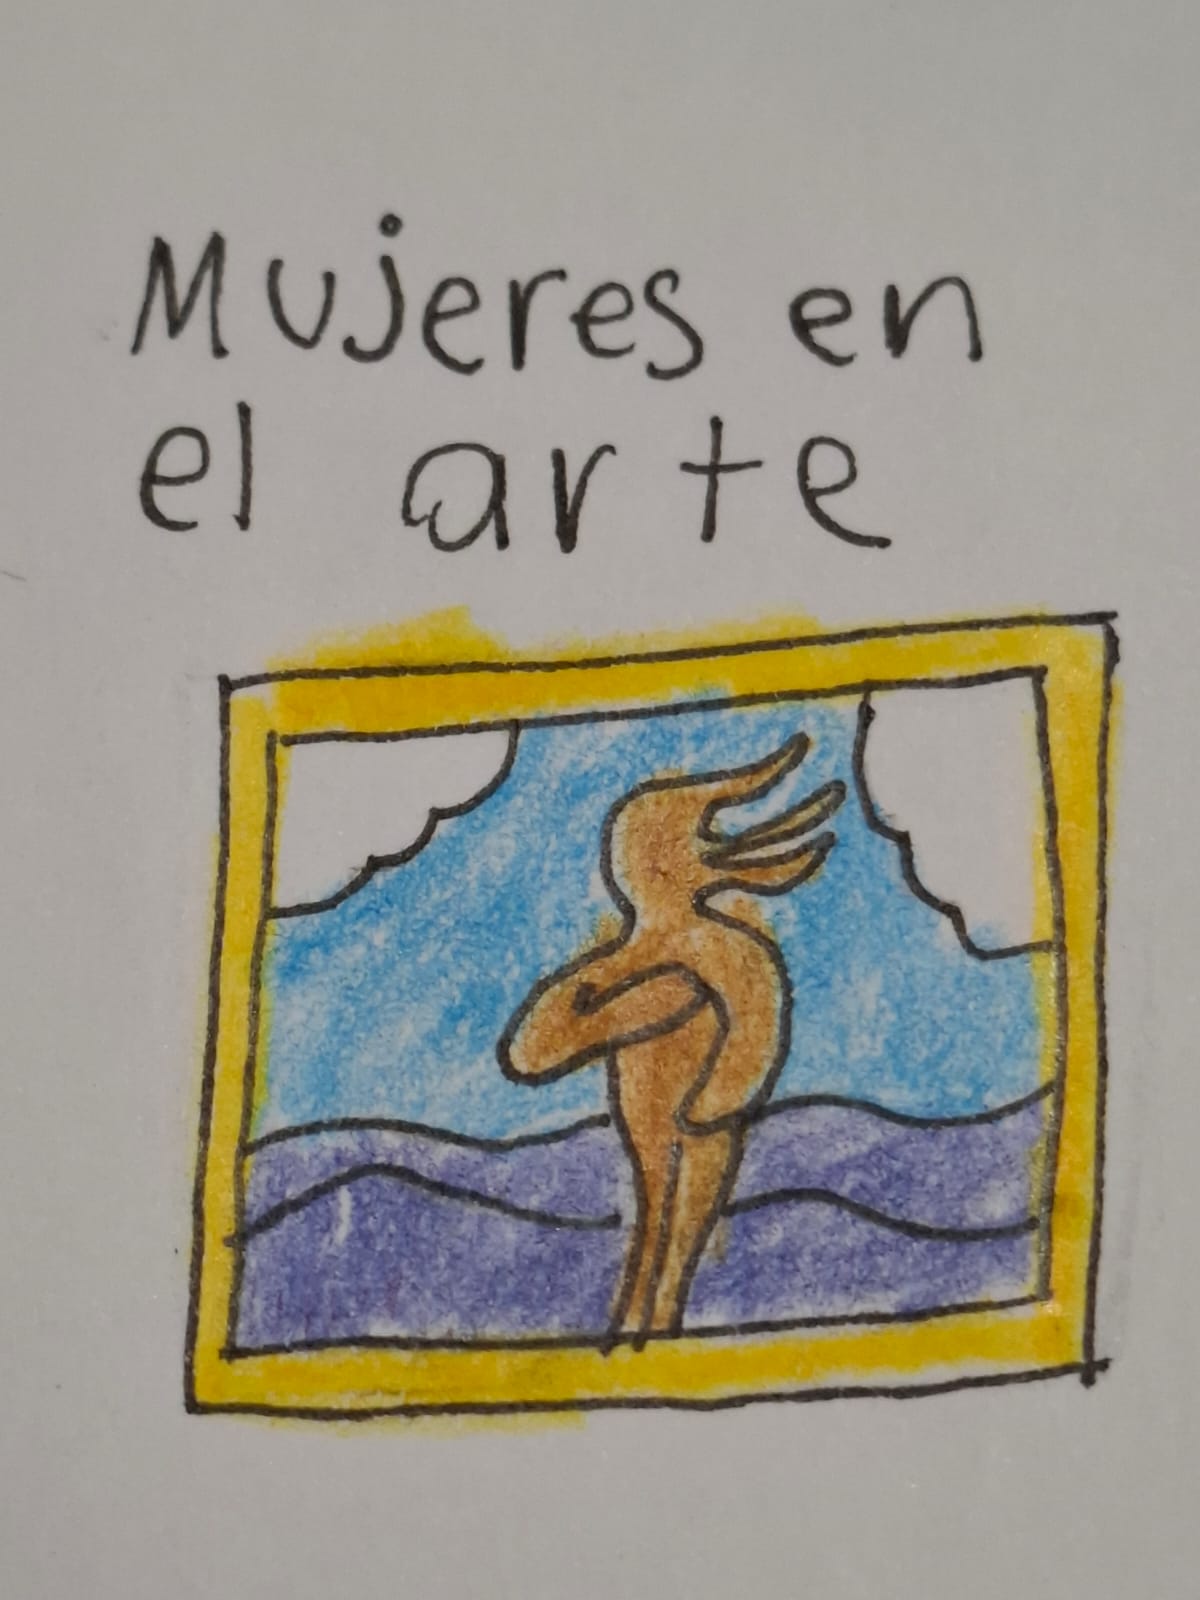 Mujeres en
el arte